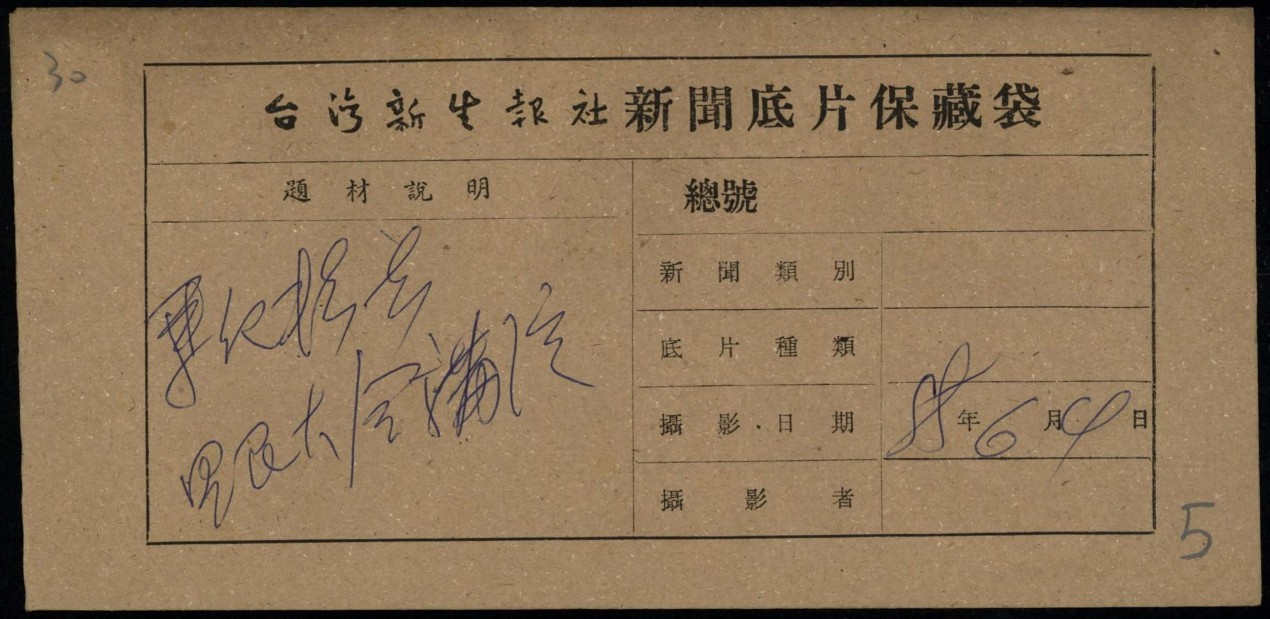 30
台湾新生報社新聞底片保藏袋
題材說明
總號
新聞類別
底片種類
攝影日期 年6月4日
攝影者
大會講演
5